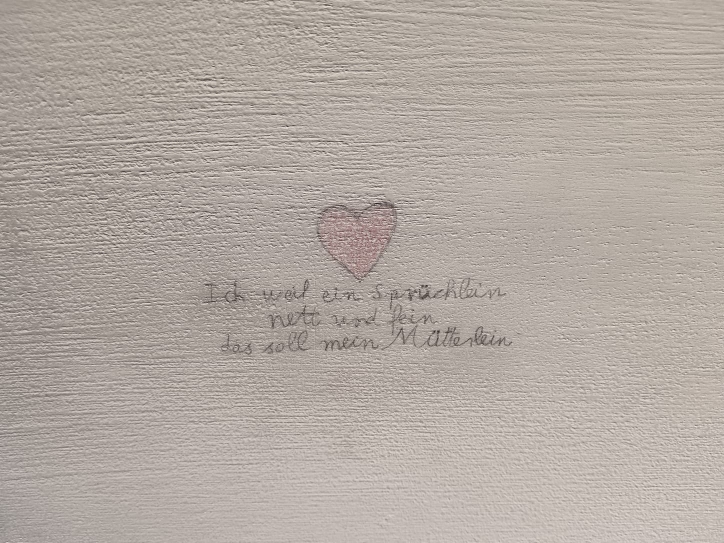 Ich weiß ein Sprüchlein
nett und fein
das soll mein Mütterlein